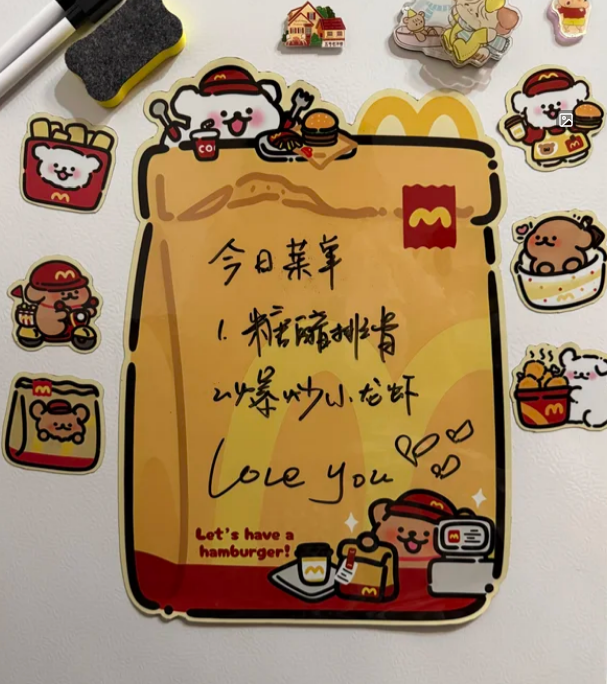 CO
今日菜单
1. 糖醋排骨
2. 爆炒小龙虾
Love you
Let's have a
hamburger!